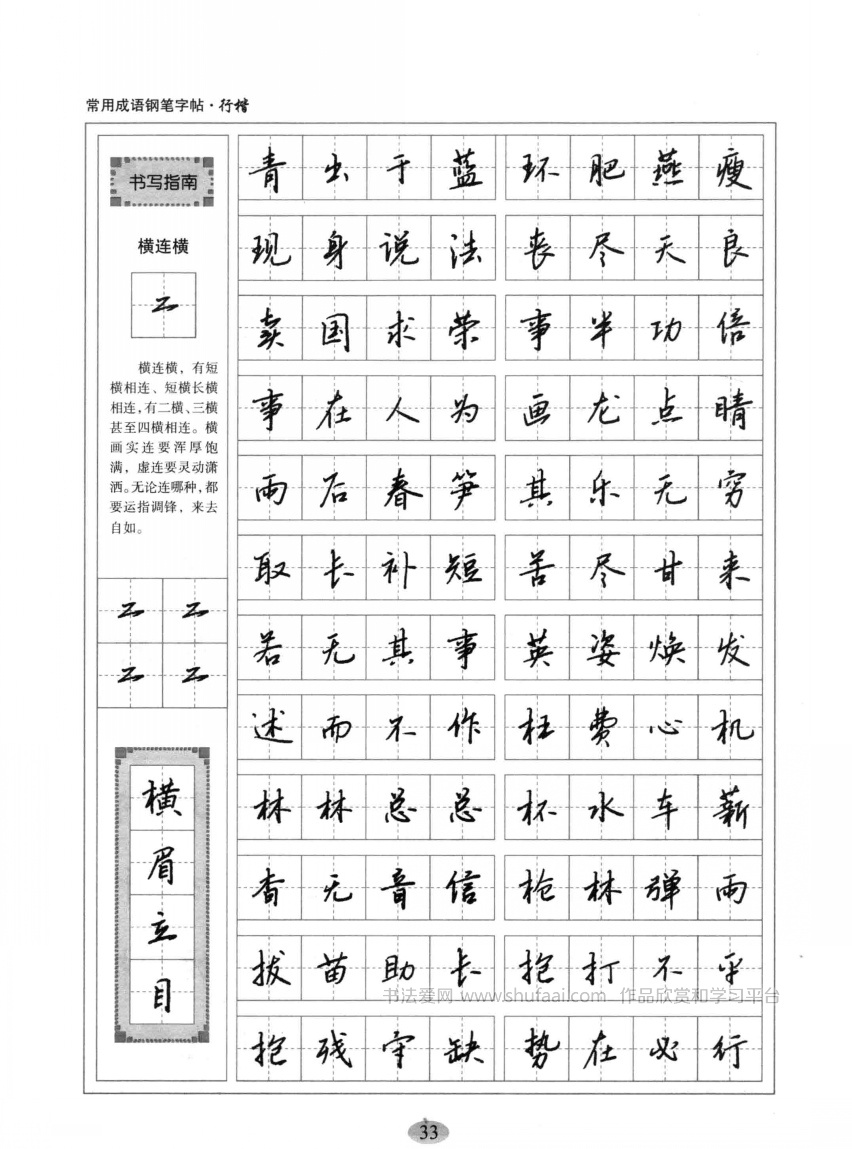 常用成语钢笔字帖·行楷
书写指南
横连横
二
横连横，有短
横相连、短横长横
相连，有二横、三横
甚至四横相连。横
画实连要浑厚饱
满，虚连要灵动潇
洒。无论连哪种，都
要运指调锋，来去
自如。
二 二
二 二
横
眉
立
目
青出于蓝 环肥燕瘦
现身说法 丧尽天良
卖国求荣 事半功倍
事在人为 画龙点睛
雨后春笋 其乐无穷
取长补短 苦尽甘来
若无其事 英姿焕发
述而不作 枉费心机
林林总总 杯水车薪
杳无音信 枪林弹雨
拔苗助长 抱打不平
抱残守缺 势在必行
书法爱网 www.shufaai.com 作品欣赏和学习平台
33